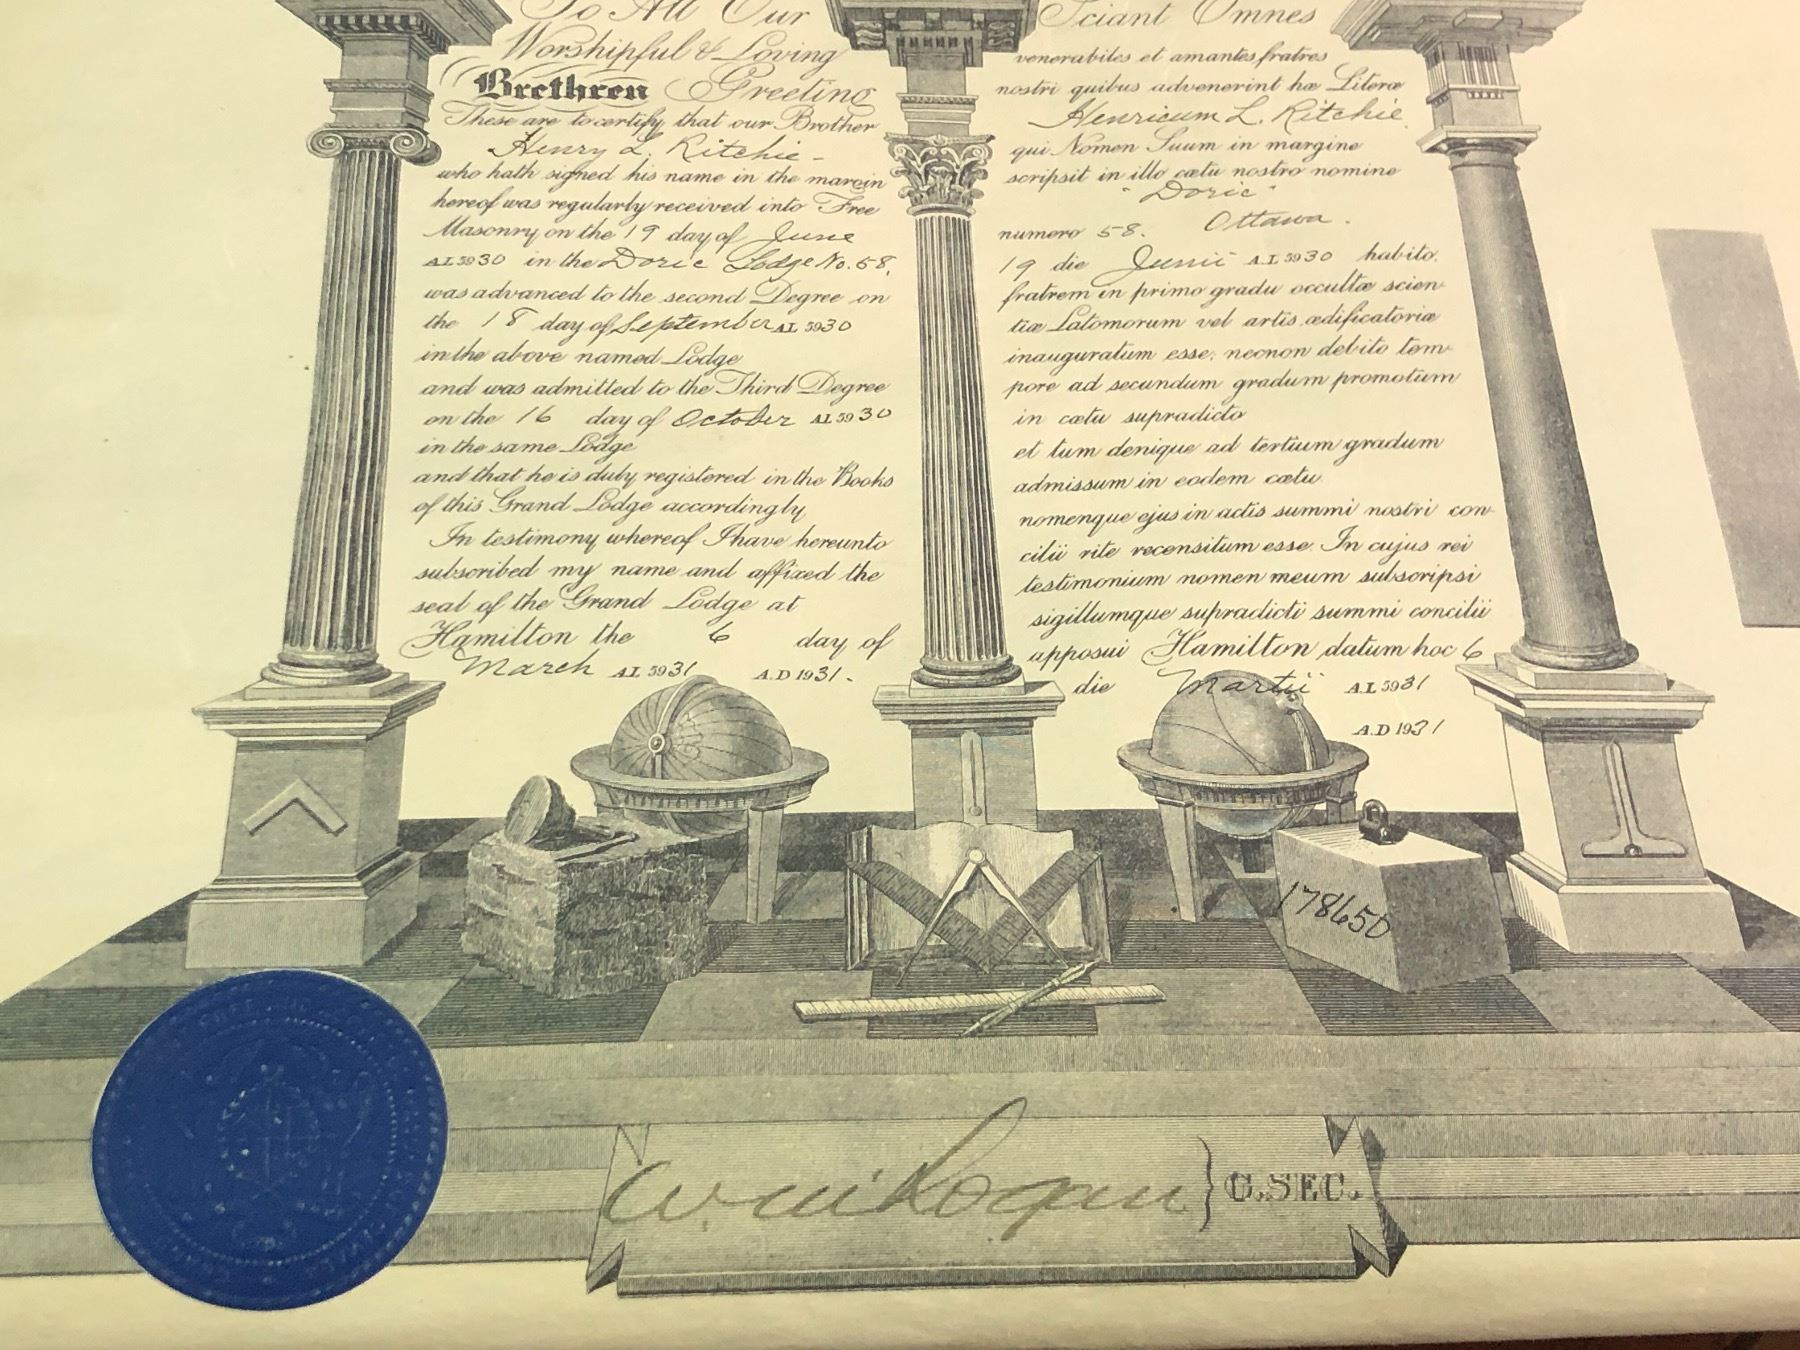 To All Our
Worshipful & Loving
Brethren Greeting
These are to certify that our Brother
Henry L. Ritchie -
who hath signed his name in the margin
hereof was regularly received into Free
Masonry on the 19 day of June
A.L 5930 in the Doric Lodge No. 58,
was advanced to the second Degree on
the 18 day of September A.L 5930
in the above named Lodge
and was admitted to the Third Degree
on the 16 day of October A.L 5930
in the same Lodge
and that he is duly registered in the Books
of this Grand Lodge accordingly
In testimony whereof I have hereunto
subscribed my name and affixed the
seal of the Grand Lodge at
Hamilton the 6 day of
March A.L 5931 A.D 1931.
Sciant Omnes
venerabiles et amantes fratres
nostri quibus advenerint hæ Literæ
Henricum L. Ritchie
qui Nomen Suum in margine
scripsit in illo cœtu nostro nomine
"Doric"
numero 58. Ottawa.
19 die Junii A.L 5930 habito,
fratrem in primo gradu occultæ scien-
tiæ Latomorum vel artis ædificatoriæ
inauguratum esse; neonon debito tem-
pore ad secundum gradum promotum
in cœtu supradicto
et tum denique ad tertium gradum
admissum in eodem cœtu.
nomenque ejus in actis summi nostri con-
cilii rite recensitum esse. In cujus rei
testimonium nomen meum subscripsi
sigillumque supradicti summi concilii
apposui Hamilton datum hoc 6
die Martii A.L 5931
A.D 1931
178650
Logan } G.SEC.